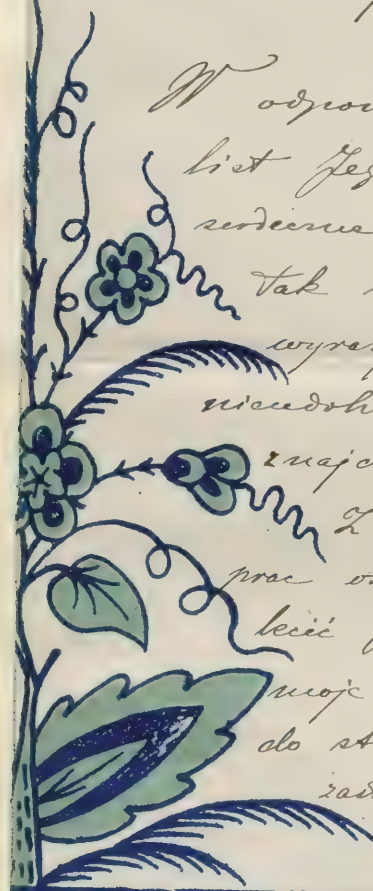 W odpow
list Jeg
serdeczne
tak
wyraz
nieudoh
znajd
Z
prac
lecić
moje
do st
zad